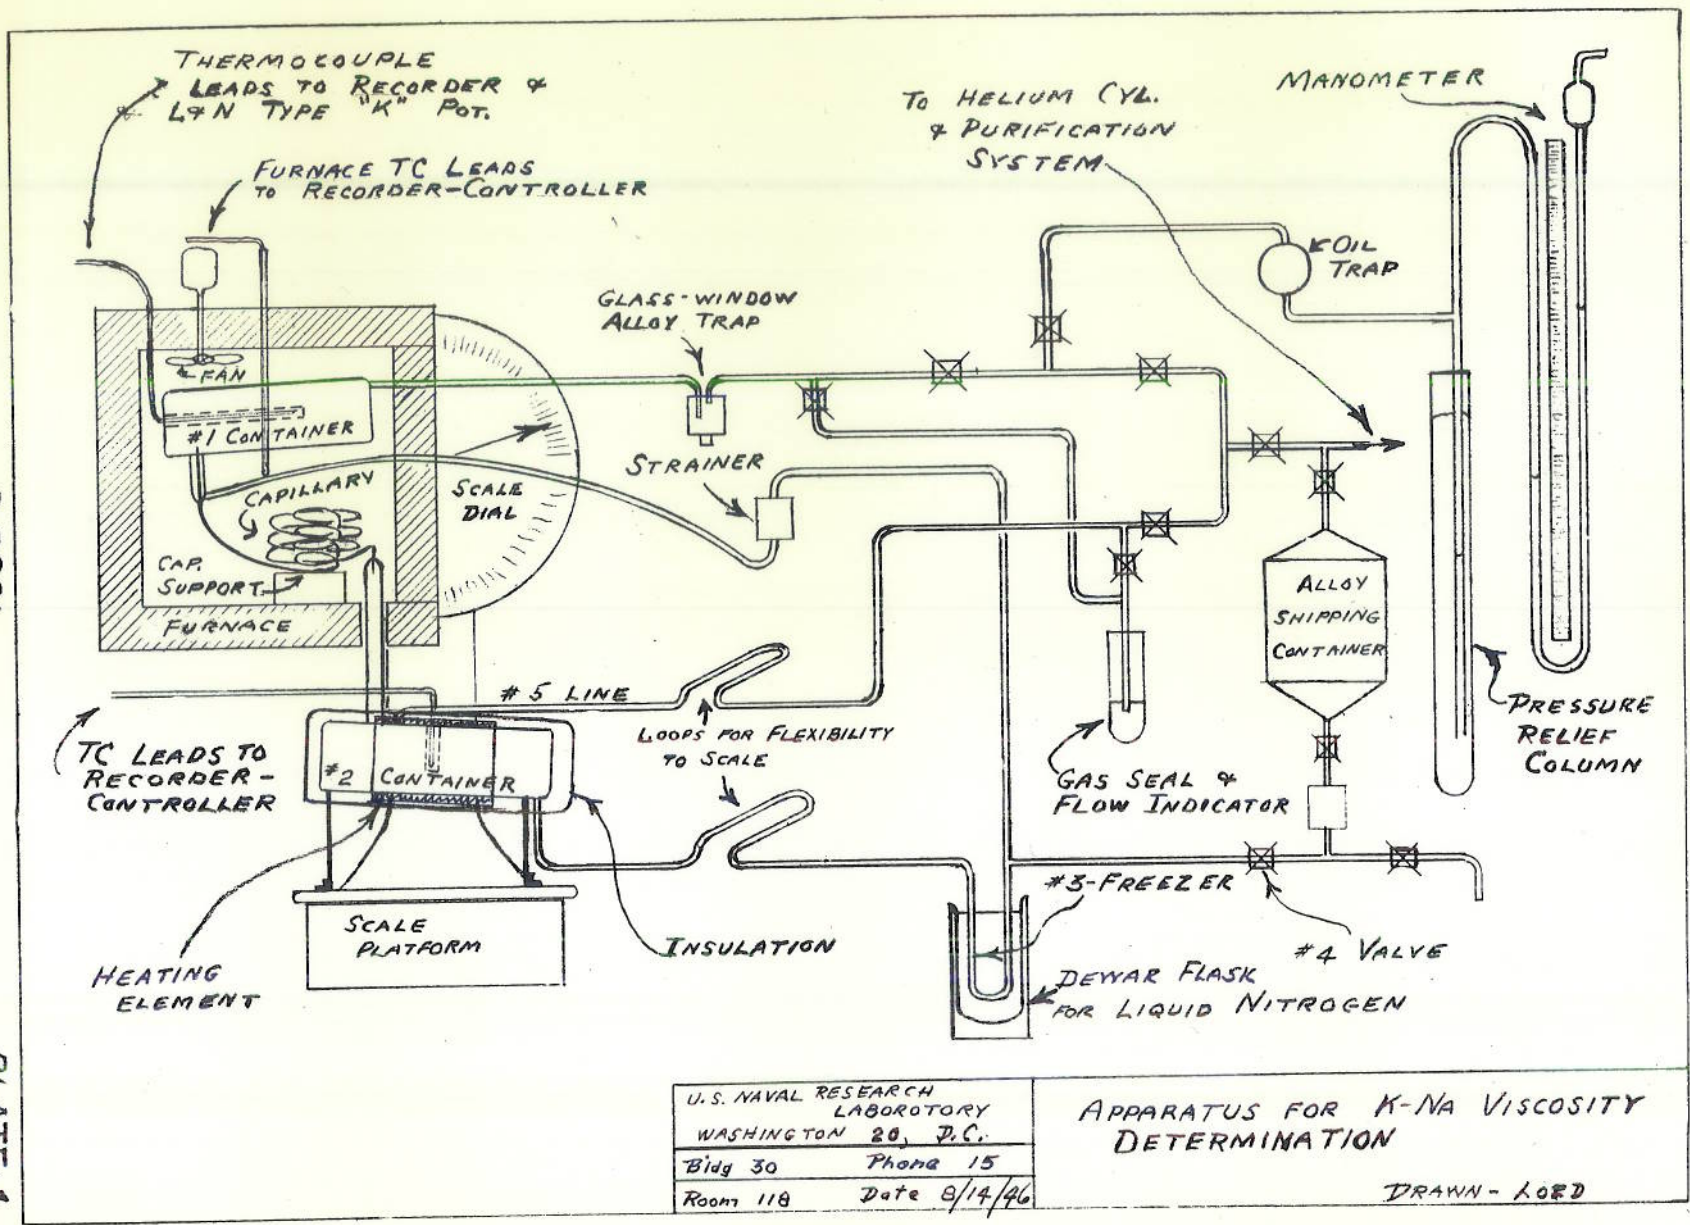 THERMOCOUPLE
LEADS TO RECORDER &
L&N TYPE "K" POT.
FURNACE TC LEADS
TO RECORDER-CONTROLLER
TO HELIUM CYL.
& PURIFICATION
SYSTEM
MANOMETER
OIL
TRAP
GLASS-WINDOW
ALLOY TRAP
FAN
#1 CONTAINER
STRAINER
CAPILLARY
SCALE
DIAL
CAP.
SUPPORT
FURNACE
ALLOY
SHIPPING
CONTAINER
#5 LINE
LOOPS FOR FLEXIBILITY
TO SCALE
PRESSURE
RELIEF
COLUMN
TC LEADS TO
RECORDER-
CONTROLLER
#2 CONTAINER
GAS SEAL &
FLOW INDICATOR
#3-FREEZER
SCALE
PLATFORM
INSULATION
#4 VALVE
HEATING
ELEMENT
DEWAR FLASK
FOR LIQUID NITROGEN
U.S. NAVAL RESEARCH
LABOROTORY
WASHINGTON 20, D.C.
Bldg 30 Phone 15
Room 118 Date 8/14/46
APPARATUS FOR K-NA VISCOSITY
DETERMINATION
DRAWN - LORD